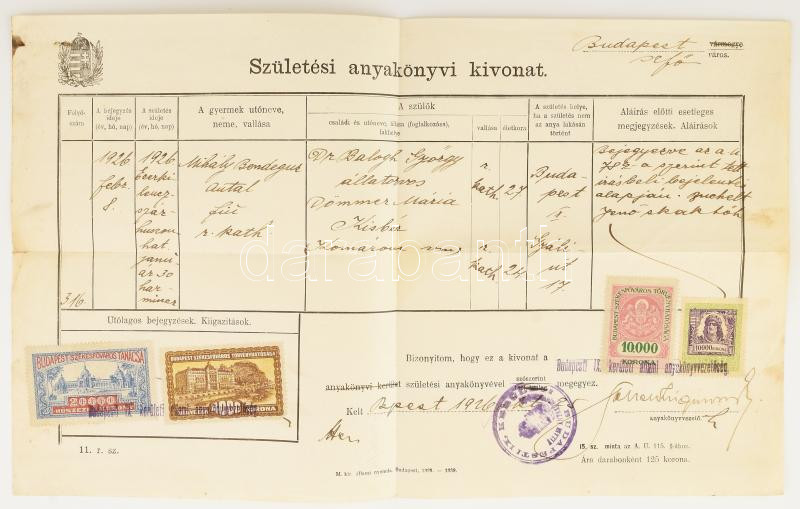 Budapest vármegye
város.
Születési anyakönyvi kivonat.
Folyó-
szám
A bejegyzés
ideje
(év, hó, nap)
A születés
ideje
(év, hó, nap)
A gyermek utóneve,
neme, vallása
A szülők
családi és utóneve, állása (foglalkozása),
lakhelye
vallása
életkora
A születés helye,
ha a születés nem
az anya lakásán
történt
Aláírás előtti esetleges
megjegyzések. Aláírások
316
1926
febr.
8.
1926
Ezerki-
lencz-
száz-
huszon-
hat
janu-
ár 30
har-
mincz
Mihály
Antal
fiú
r. kath
Dr Balogh György
állatorvos
Dömmer Mária
Kisbér
Komárom
r.
kath.
27
r
kath
24
Buda-
pest
X.
út
17.
Bejegyezve az a. u
a szerint tett
írásbeli bejelentés
alapján.
Jenő
darabanth
Utólagos bejegyzések. Kiigazitások.
BUDAPEST SZÉKESFŐVÁROS TANÁCSA
20000
BUDAPEST SZÉKESFŐVÁROS TÖRVÉNYHATÓSÁGA
KORONA
BUDAPEST SZÉKESFŐVÁROS TÖRVÉNYHATÓSÁGA
10.000
KORONA
10000 KORONA
Bizonyitom, hogy ez a kivonat a
Budapesti IX. kerületi állami anyakönyvvezetőség
anyakönyvi kerület születési anyakönyvével szószerint megegyez.
Kelt Bpest 1926
anyakönyvvezető
11. r. sz.
15. sz. minta az A. U. 115. §-ához.
Ára darabonként 125 korona.
M. kir. állami nyomda. Budapest, 1926. — 1939.